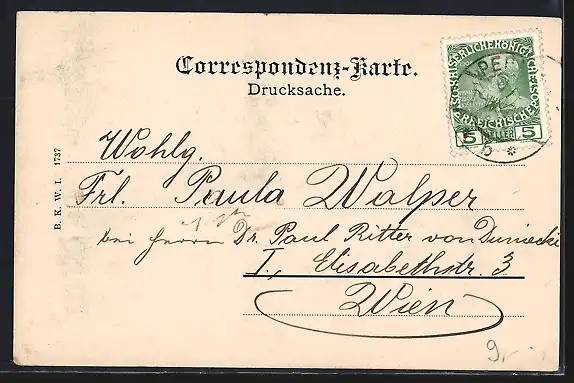 Correspondenz-Karte.
Drucksache.
KAISERLICHE KÖNIGLICHE
ÖSTERREICHISCHE
5 HELLER 5
B. K. W. I. 1737
Wohlg.
Frl. Paula Walper
bei Herrn Dr. Paul Ritter von Duniecki
I., Elisabethstr. 3
Wien
9,-